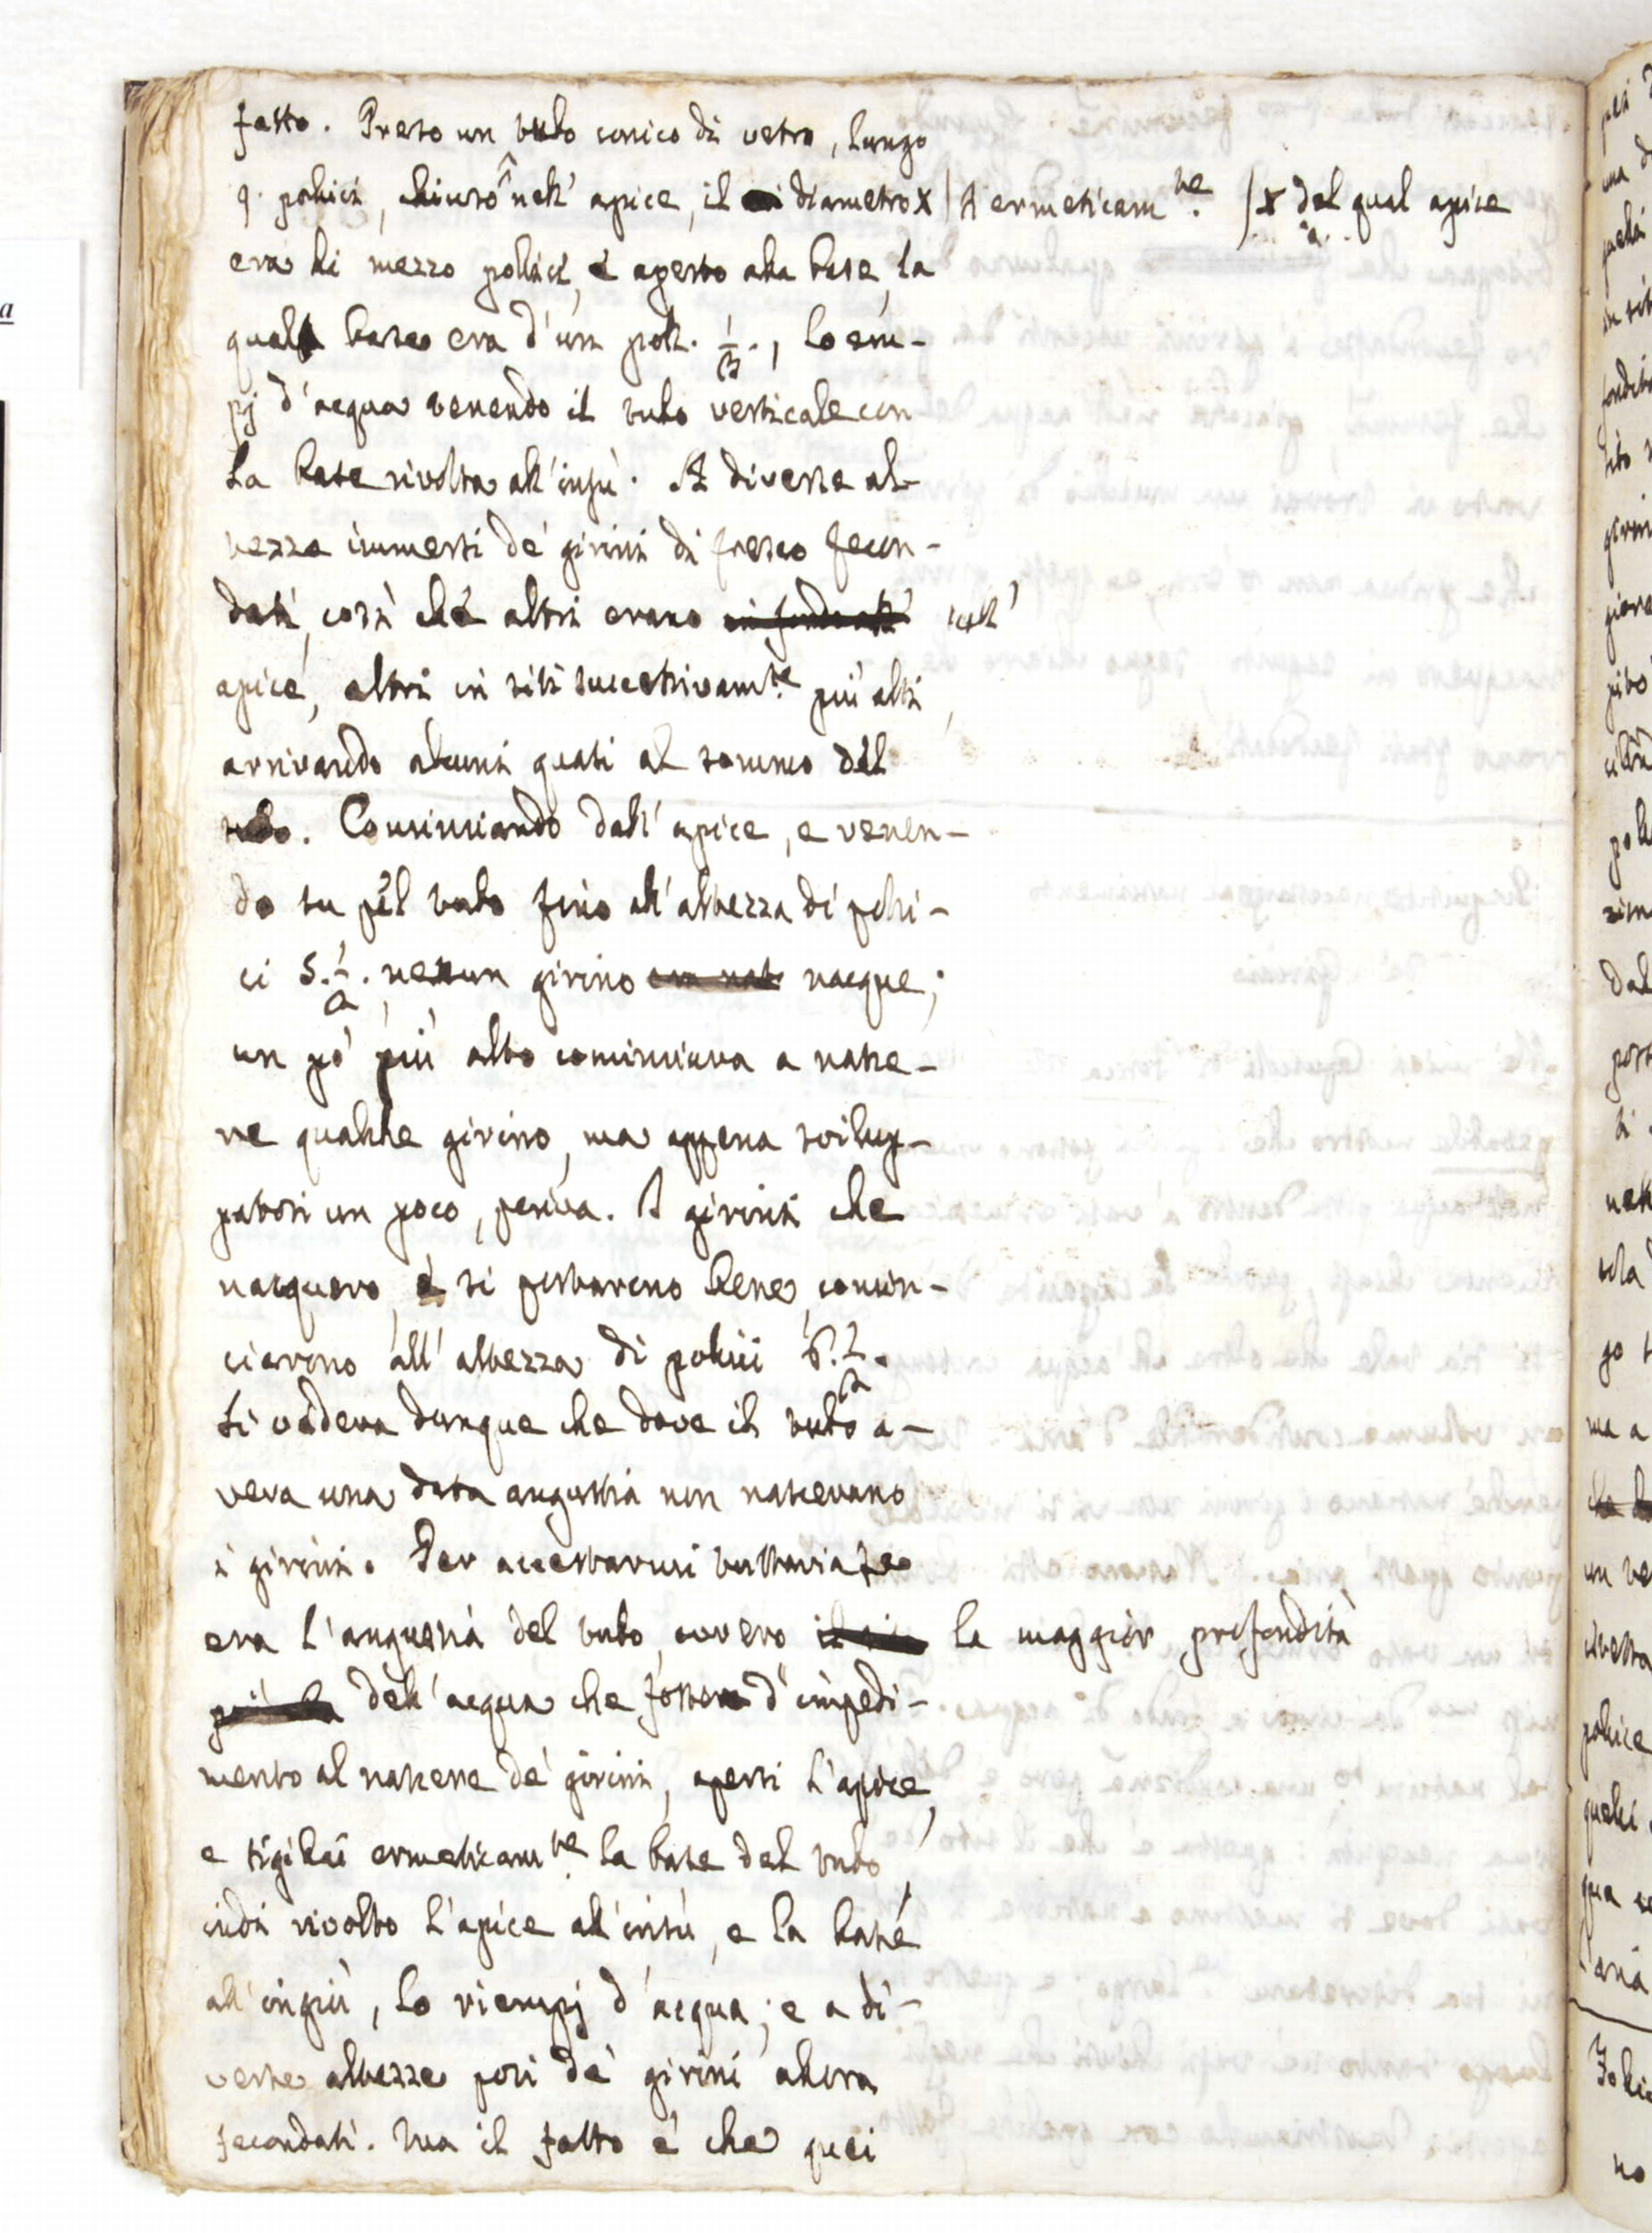 fatto. Preso un tubo conico di vetro, lungo
9. pollici, chiuso^nell' apice, il diametro X | ermeticam.te | X del qual apice
era di mezzo pollici, e aperto alla base, la
qual base era d'un poll. 1/2., lo em-
pj d'acqua tenendo il tubo verticale con
la base rivolta all'insù. A diverse al-
tezze immersi de' girini di fresco fecon-
dati, così che altri erano in fondo all' nell'
apice, altri in siti successivam.te più alti,
arrivando alcuni quasi al sommo del
tubo. Cominciando dall' apice, e venen-
do su pel tubo fino all'altezza di polli-
ci 5. 1/2. nessun girino era nat nacque;
un pò più alto cominciava a nasce-
re qualche girino, ma appena svilup-
patosi un poco, periva. I girini che
nacquero, e si portarono bene, comin-
ciarono all' altezza di pollici 6. 1/2.
Si vedeva dunque che dove il tubo a-
veva una data angustia non nascevano
i girini. Per accertarmi tuttavia se
era l'angustia del tubo, ovvero la maggior profondità
dell' acqua che fosse d'impedi-
mento al nascere de' girini, apersi l'apice,
e sigillai ermeticam.te la base del tubo,
indi rivolto l'apice all'insù, e la base
all'ingiù, lo riempj d'acqua; e a di-
verse altezze posi de' girini allora
fecondati. Ma il fatto è che quei